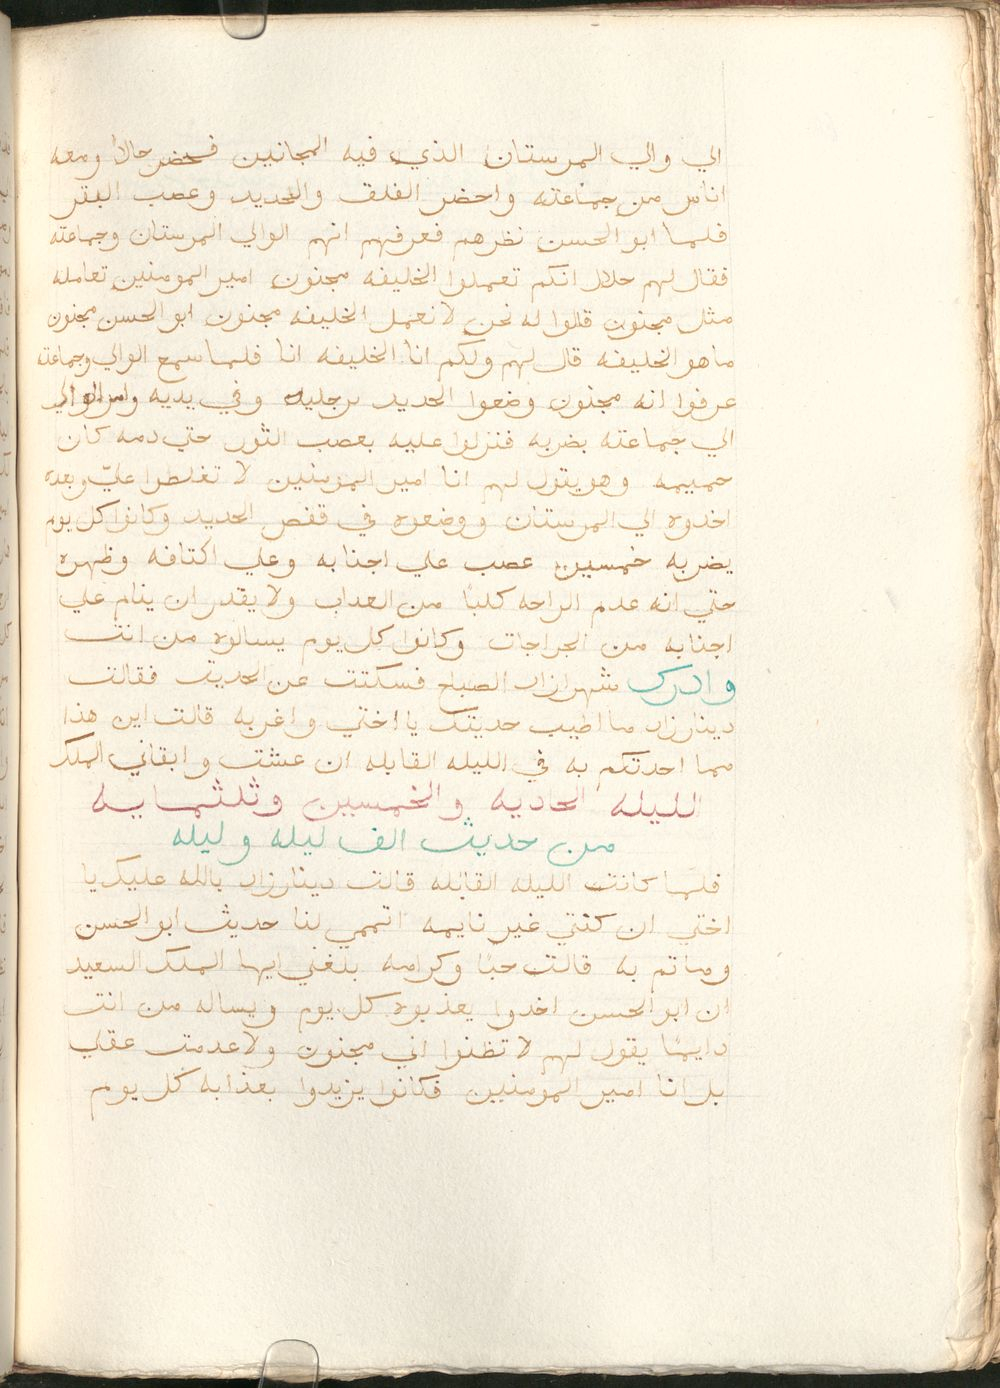 الي والي المرستان الذي فيه المجانين فحضر حالاً ومعه
اناس من جماعته واحضر الفلق والحديد وعصب البقر
فلما ابو الحسن نظرهم فعرفهم انهم الوالي المرستان وجماعته
فقال لهم حلال انكم تعملوا الخليفه مجنون امير المومنين تعامله
مثل مجنون قالوا له نحن لا نعمل الخليفه مجنون ابو الحسن مجنون
ما هو الخليفه قال لهم ولكم انا الخليفه انا فلما سمع الوالي وجماعته
عرفوا انه مجنون وضعوا الحديد برجليه وفي يديه وامر الوالي
الي جماعته بضربه فنزلوا عليه بعصب الثور حتي دمه كان
حميمه وهو يقول لهم انا امير المومنين لا تغلطوا عليّ وبعده
اخدوه الي المرستان ووضعوه في قفص الحديد وكانوا كل يوم
يضربه خمسين عصب علي اجنابه وعلي اكتافه وظهره
حتي انه عدم الراحه كلبًا من العداب ولا يقدر ان ينام علي
اجنابه من الجراجات وكانوا كل يوم يسالوه من انت
وادرك شهرازاد الصباح فسكتت عن الحديث فقالت
دينارزاد ما اطيب حديتك يا اختي واغربه قالت اين هذا
مما احدتكم به في الليله القابله ان عشت وابقاني الملك
الليله الحاديه والخمسين وثلثمايه
من حديث الف ليله وليله
فلما كانت الليله القابله قالت دينارزاد بالله عليك يا
اختي ان كنتي غير نايمه اتممي لنا حديث ابو الحسن
وما تم به قالت حبًا وكرامه بلغني ايها الملك السعيد
ان ابو الحسن اخدوا يعذبوه كل يوم ويساله من انت
دايمًا يقول لهم لا تظنوا اني مجنون ولا عدمت عقلي
بل انا امير المومنين فكانوا يزيدوا بعذابه كل يوم